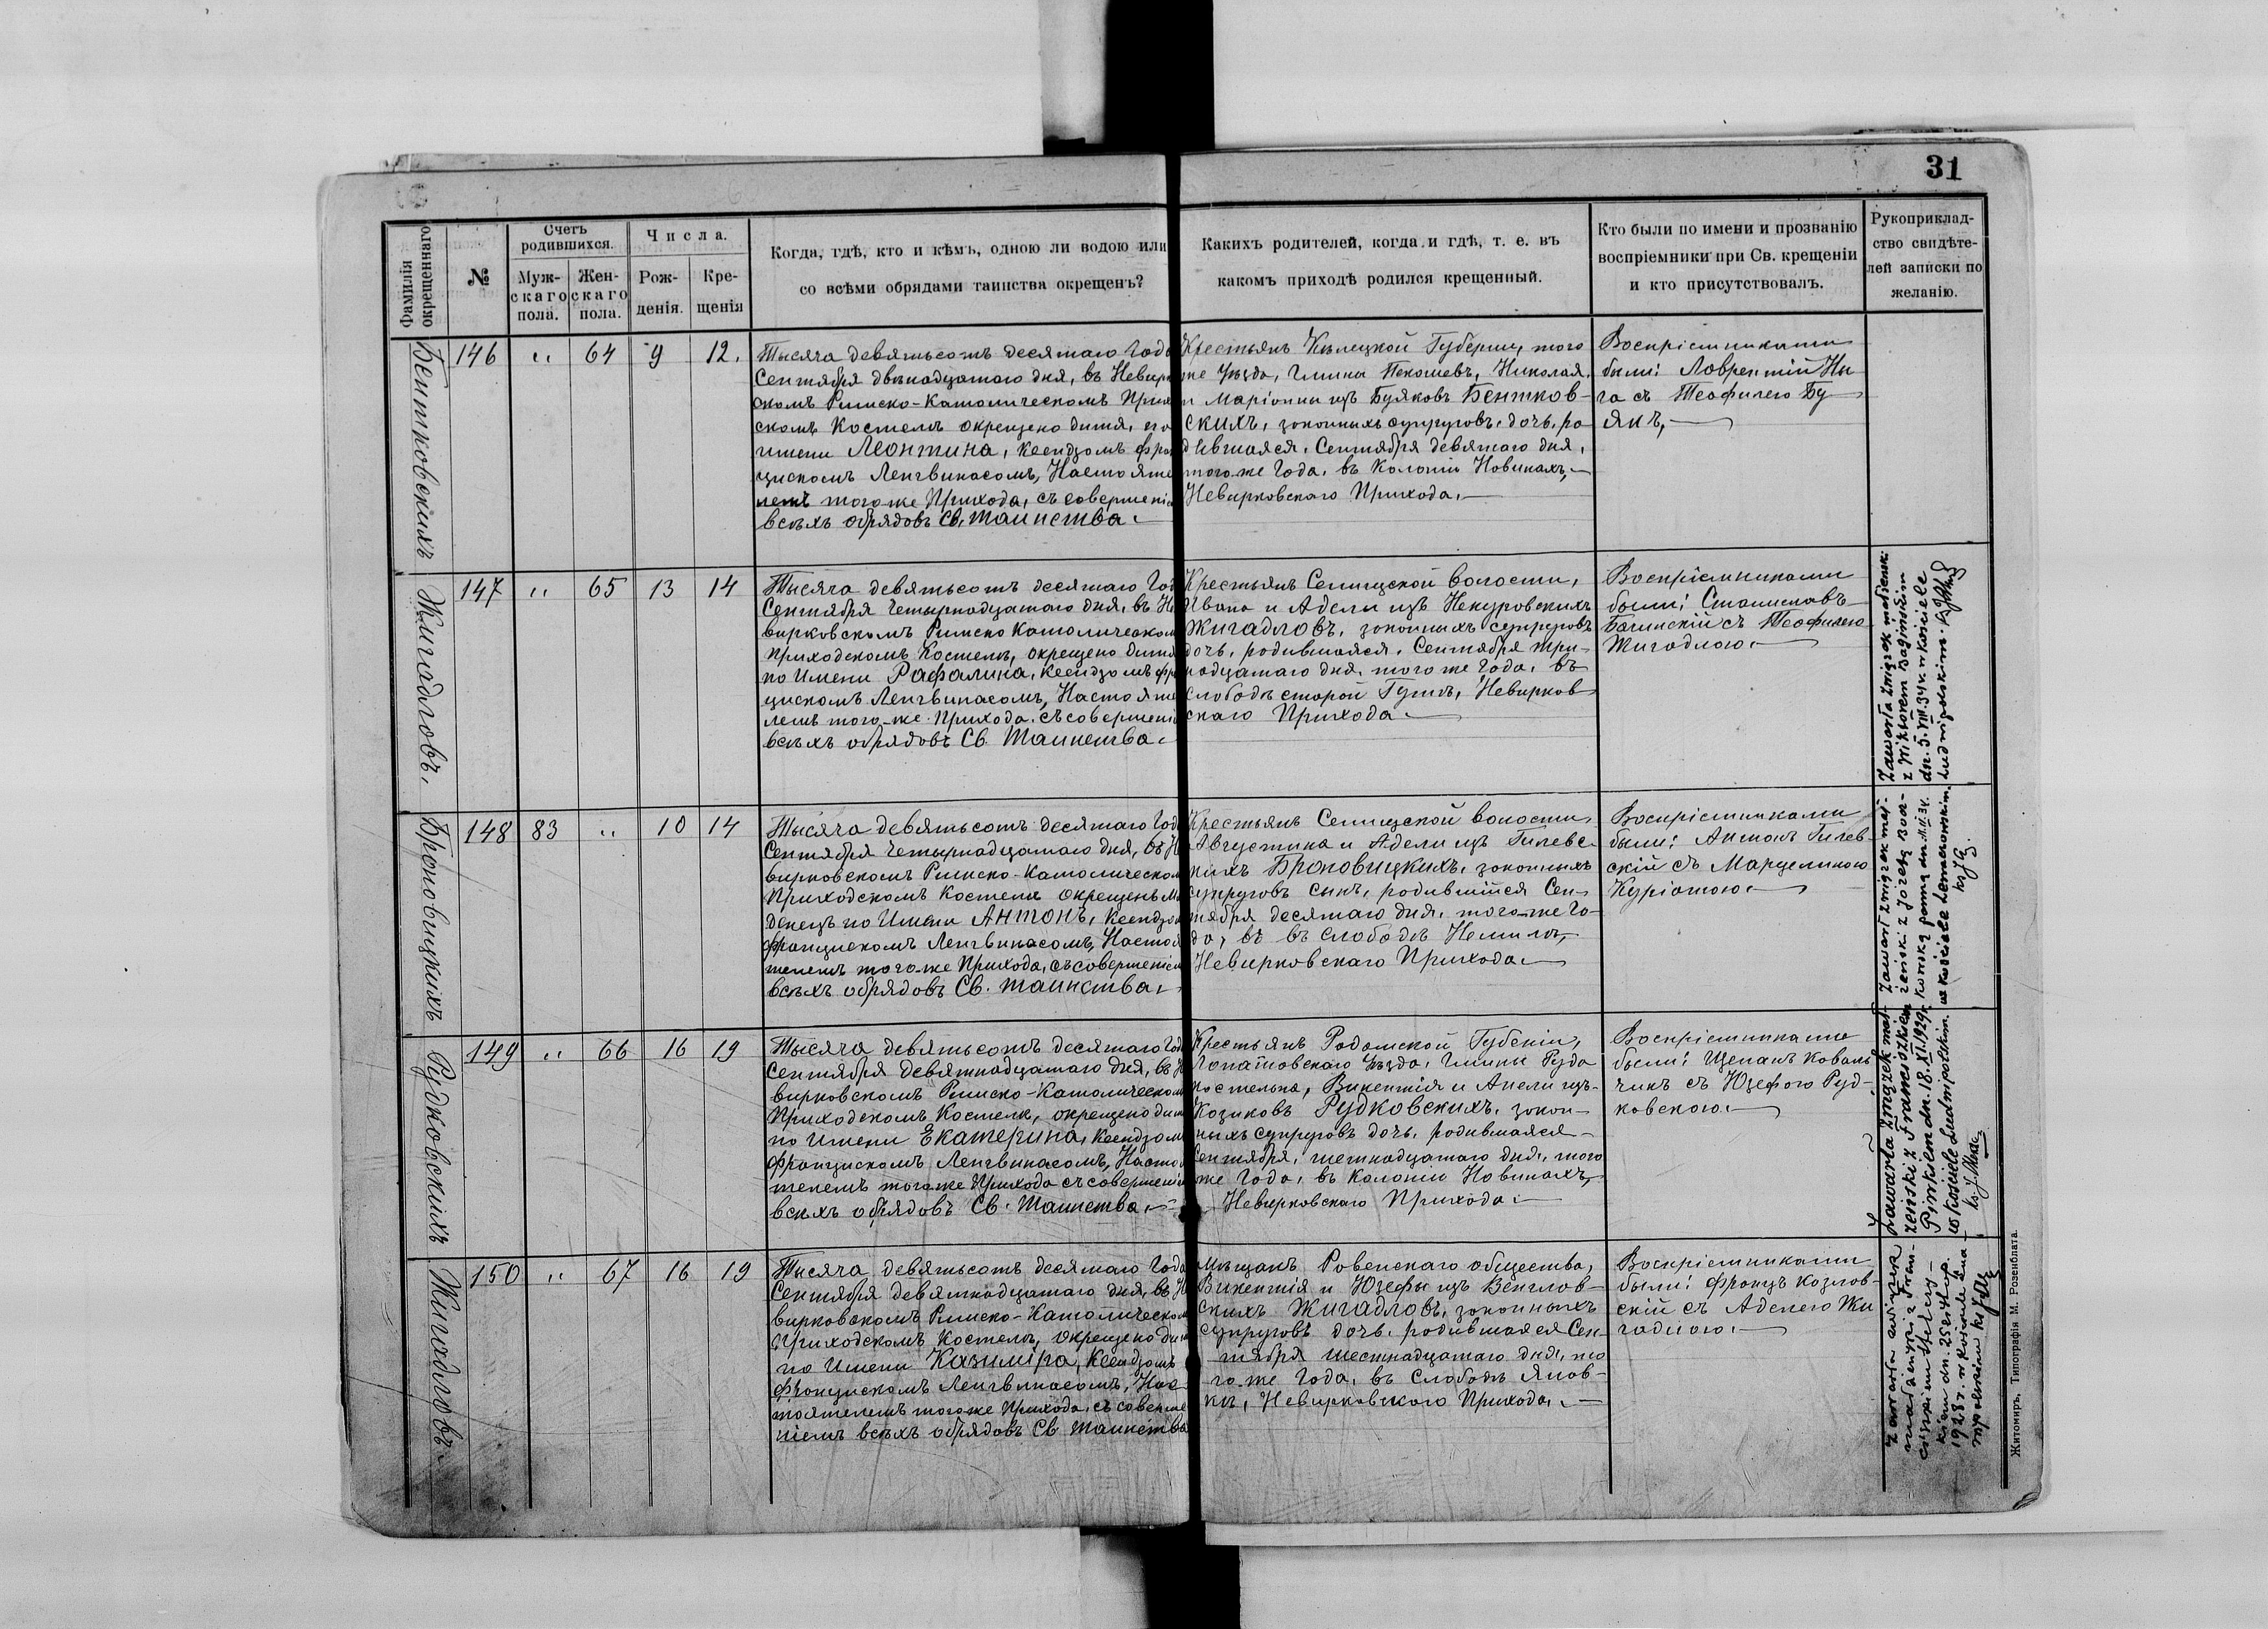 31
Фамилія окрещеннаго
№
Счетъ родившихся.
Муж-
скаго
пола.
Жен-
скаго
пола.
Числа.
Рож-
денія.
Кре-
щенія
Когда, гдѣ, кто и кѣмъ, одною ли водою или
со всѣми обрядами таинства окрещенъ?
Какихъ родителей, когда и гдѣ, т. е. въ
какомъ приходѣ родился крещенный.
Кто были по имени и прозванію
воспріемники при Св. крещеніи
и кто присутствовалъ.
Рукоприклад-
ство свидѣте-
лей записки по
желанію.
Бентковскихъ
146 " 64 9 12.
Тысяча девятьсотъ десятаго Года
Сентября двѣнадцатаго дня, въ Невир
скомъ Римско-Католическомъ Прихо
скомъ Костелѣ окрещено дитя, по
имени Леонтина, Ксендзомъ Фран
цискомъ Ленгвинасомъ, Настояте
лемъ того-же Прихода, съ совершені
всѣхъ обрядовъ Св. Таинства.
Крестьянъ Кѣлецкой Губерніи, того
же Уѣзда, Гмины Пекошевъ, Николая
и Маріанны изъ Буяковъ Бентков-
скихъ, законныхъ супруговъ, дочь, ро
дившаяся, Сентября девятаго дня,
того же Года, въ Колоніи Новинахъ,
Невирковскаго Прихода.
Воспріемниками
были: Лаврентій Ны
га съ Теофилею Бу
якъ,
Жигадловъ.
147 " 65 13 14
Тысяча девятьсотъ десятаго Год
Сентября Четырнадцатаго дня, въ Не
вирковскомъ Римско Католическом
Приходскомъ Костелѣ, окрещено дитя
по Имени Рафалина, Ксендзомъ Фр
цискомъ Ленгвинасомъ, Настояте
лемъ того-же Прихода, съ совершені
всѣхъ обрядовъ Св. Таинства.
Крестьянъ Селищской волости,
Ивана и Адели изъ Некуровскихъ
Жигадловъ, законныхъ супруговъ
дочь, родившаяся, Сентября три-
надцатаго дня, того же Года, въ
Слободѣ старой Гутѣ, Невирков-
скаго Прихода.
Воспріемниками
были: Станиславъ
Багинскій съ Теофилею
Жигадлою.
Zawarła związek małżeński
z Wiktorem Bagińskim
dn. 5. VIII. 34 r. w Kościele
Ludwipolskim.
Броновицкихъ
148 83 " 10 14
Тысяча девятьсотъ десятаго Год
Сентября Четырнадцатаго дня, въ Н
вирковскомъ Римско-Католическом
Приходскомъ Костелѣ окрещенъ Мл
денецъ по Имени Антонъ, Ксендзом
Францискомъ Ленгвинасомъ, Настоя
телемъ того-же Прихода, съ совершеніем
всѣхъ обрядовъ Св. Таинства.
Крестьянъ Селищской волости,
Августина и Адели изъ Гилевс-
кихъ Броновицкихъ, законныхъ
супруговъ сынъ, родившійся Сен-
тября десятаго дня, того-же Го-
да, въ въ слободѣ Немилѣ,
Невирковскаго Прихода.
Воспріемниками
были: Антонъ Гилев-
скій съ Марцелиною
Куріатою.
Zawarł związek mał-
żeński z Józefą
w kościele
Рудковскихъ
149 " 66 16 19
Тысяча девятьсотъ десятаго Год
Сентября девятнадцатаго дня, въ Н
вирковскомъ Римско-Католическом
Приходскомъ Костелѣ, окрещено дит
по Имени Екатерина, Ксендзом
Францискомъ Ленгвинасомъ, Настоя
телемъ того же Прихода съ совершені
всѣхъ обрядовъ Св. Таинства.
Крестьянъ Радомской Губеніи,
Опатовскаго Уѣзда, Гмины Руда
костельна, Викентія и Анели изъ
Козиковъ Рудковскихъ, закон-
ныхъ супруговъ дочь, родившаяся
Сентября, шетнадцатаго дня, того
же Года, въ Колоніи Новинахъ,
Невирковскаго Прихода.
Воспріемниками
были: Щепанъ Коваль
чикъ съ Юзефою Руд-
ковскою.
Zawarła związek mał-
żeński z Franciszkiem
dn. 18. XI. 1929 r.
w Kościele Ludwipolskim.
Жигадловъ.
150 " 67 16 19
Тысяча девятьсотъ десятаго Года
Сентября девятнадцатаго дня, въ Н
вирковскомъ Римско-Католическом
Приходскомъ Костелѣ, окрещено дит
по Имени Казиміра, Ксендзомъ
Францискомъ Ленгвинасомъ, Нас
тоятелемъ того же Прихода, съ соверше
ніемъ всѣхъ обрядовъ Св Таинства
Мѣщанъ Ровенскаго общества,
Викентія и Юзефы изъ Венглов-
скихъ Жигадловъ, законныхъ
супруговъ дочь, родившаяся Сен-
тября шестнадцатаго дня, то
го же Года, въ Слободѣ Янов-
кѣ, Невирковскаго Прихода.
Воспріемниками
были: Францъ Козлов-
скій съ Аделею Жи
гадлою.
Zawarła związek
małżeński z Fran-
ciszkiem
1928 r. w kościele Lu-
dwipolskim
Житомиръ, Типографія М. Розенблата.